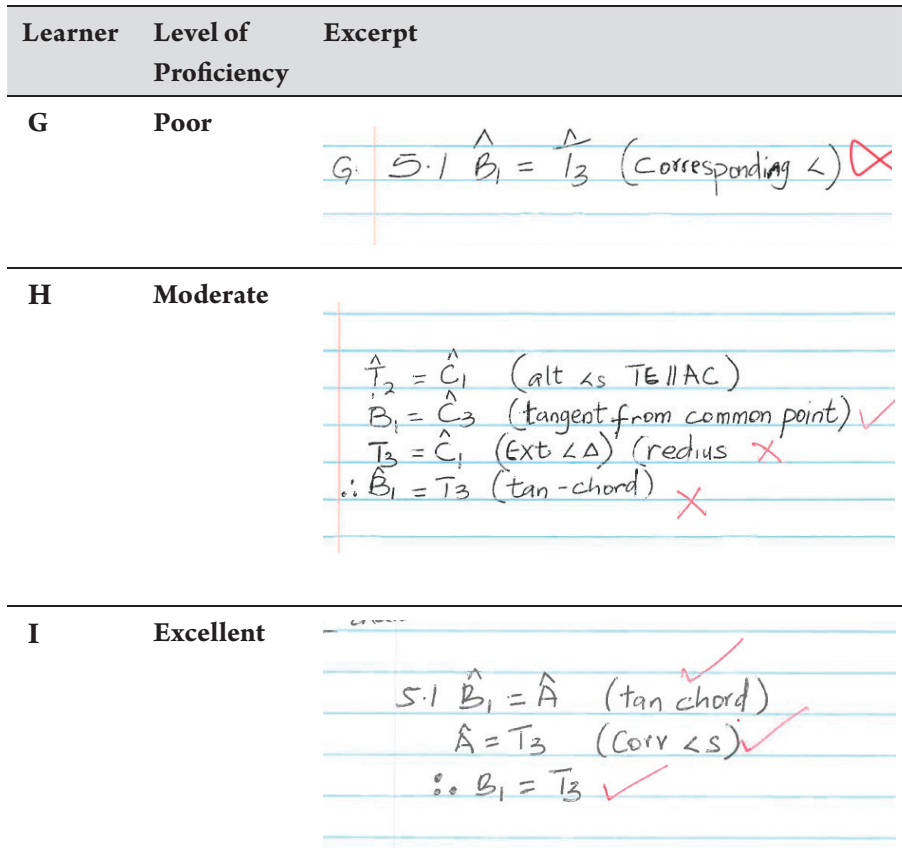 Learner Level of Excerpt
Proficiency
G Poor
G. 5.1 B̂₁ = T̂₃ (Corresponding <)
H Moderate
T̂₂ = Ĉ₁ (alt <s TE∥AC)
B₁ = Ĉ₃ (tangent from common point)
T₃ = Ĉ₁ (Ext <Δ) (redius
∴ B̂₁ = T₃ (tan-chord)
I Excellent
5.1 B̂₁ = Â (tan chord)
Â = T₃ (Corr <s)
∴ B₁ = T₃